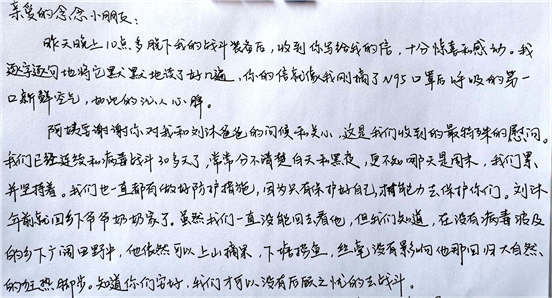 亲爱的念念小朋友：
昨天晚上10点多脱下我的战斗装备后，收到你写给我的信，十分惊喜和感动。我
逐字逐句地将它默默地读了好几遍，你的信就像我刚摘了N95口罩后呼吸的第一
口新鲜空气，如此的沁人心脾。
阿姨要谢谢你对我和刘沐爸爸的问候和关心，这是我们收到的最特殊的慰问。
我们已经连续和病毒战斗30多天了，常常分不清楚白天和黑夜，更不知哪天是周末，我们累
并坚持着。我们也一直都有做好防护措施，因为只有保护好自己，才能力去保护你们。刘沐
年前就回乡下爷爷奶奶家了。虽然我们一直没能回去看他，但我们知道，在没有病毒波及
的乡下广阔田野中，他依然可以上山摘果，下塘摸鱼，丝毫没有影响他那回归大自然、
的狂热脚步。知道你们安好，我们才可以没有后顾之忧的去战斗。